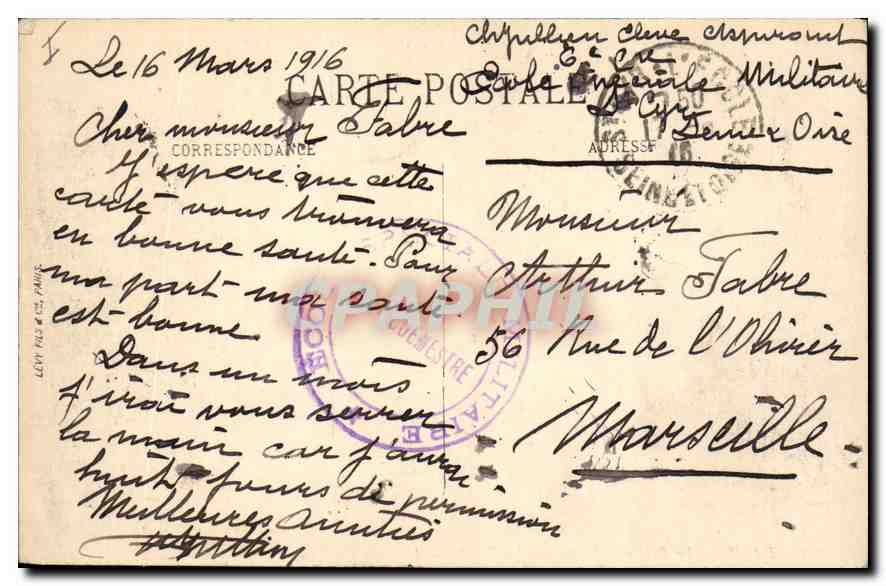 Le 16 Mars 1916
CARTE POSTALE
Cher monsieur Fabre
CORRESPONDANCE
J'espère que cette
carte vous trouvera
en bonne santé. Pour
ma part ma santé
est bonne
Dans un mois
j'irai vous serrer
la main car j'aurai
huit jours de permission
Meilleures amitiés
eleve aspirant
6e Cie
Ecole Spéciale Militaire
St Cyr
Seine et Oise
ADRESSE
Monsieur
Arthur Fabre
56 Rue de l'Olivier
Marseille
LEVY FILS & Cie, PARIS.
ECOLE SPECIALE MILITAIRE
CPAPHIL